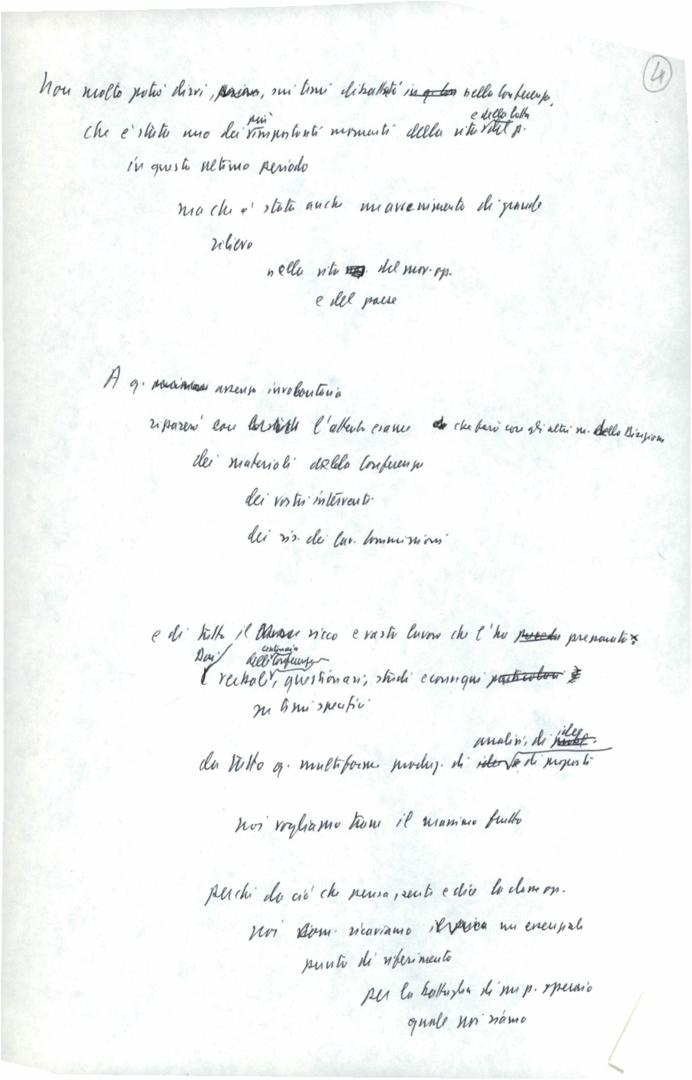 4
Non molto potrò dirvi, sui temi dibattuti nella Conferenza,
e della lotta
più
che è stata uno dei importanti momenti della vita del p.
in questo ultimo periodo
ma che è stata anche un avvenimento di grande
rilievo
nella vita del mov. op.
e del paese
A q. assenza involontaria
riparerò con l'attento esame che farò con gli altri della Direzione
dei materiali della Conferenza
dei vostri interventi
dei ris. dei lav. Commissioni
e di tutto il ricco e vasto lavoro che l'ha preparata
Dai centinaia
delle Conferenze
verbali, questionari, studi e convegni
su temi specifici
analisi, di idee
da tutto q. multiforme produz. di di proposte
noi vogliamo trarre il massimo frutto
perché da ciò che pensa, sente e dice la classe op.
noi ricaviamo un essenziale
punto di riferimento
per la battaglia di un p. operaio
quale noi siamo